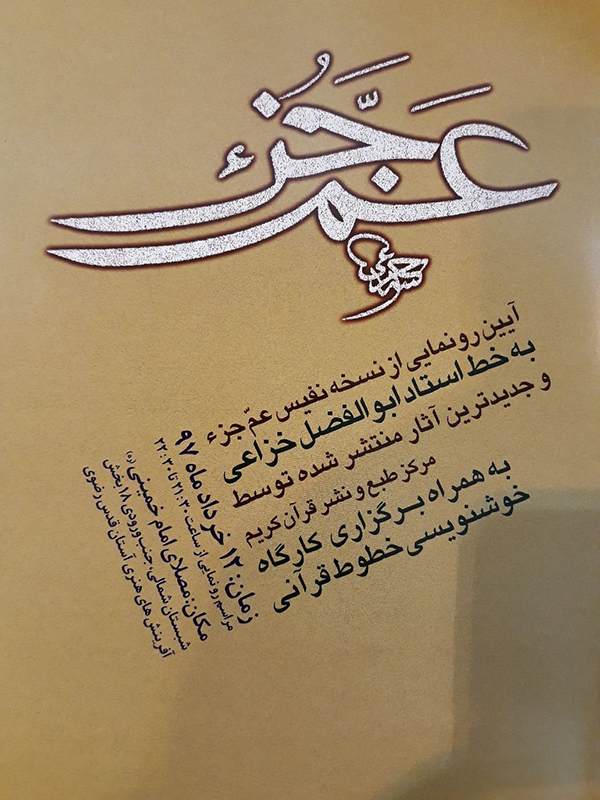 عَمَّ جُزءٌ
آیین رونمایی از نسخه نفیس عمّ جزء
به خط استاد ابوالفضل خزاعی
و جدیدترین آثار منتشر شده توسط
مرکز طبع و نشر قرآن کریم
به همراه برگزاری کارگاه
خوشنویسی خطوط قرآنی
زمان: ۱۲ خرداد ماه ۹۷
مراسم رونمایی از ساعت ۲۱:۳۰ تا ۲۲:۳۰
مکان: مصلای امام خمینی (ره)
شبستان شمالی، جنب ورودی ۱۸ بخش
آفرینش های هنری آستان قدس رضوی